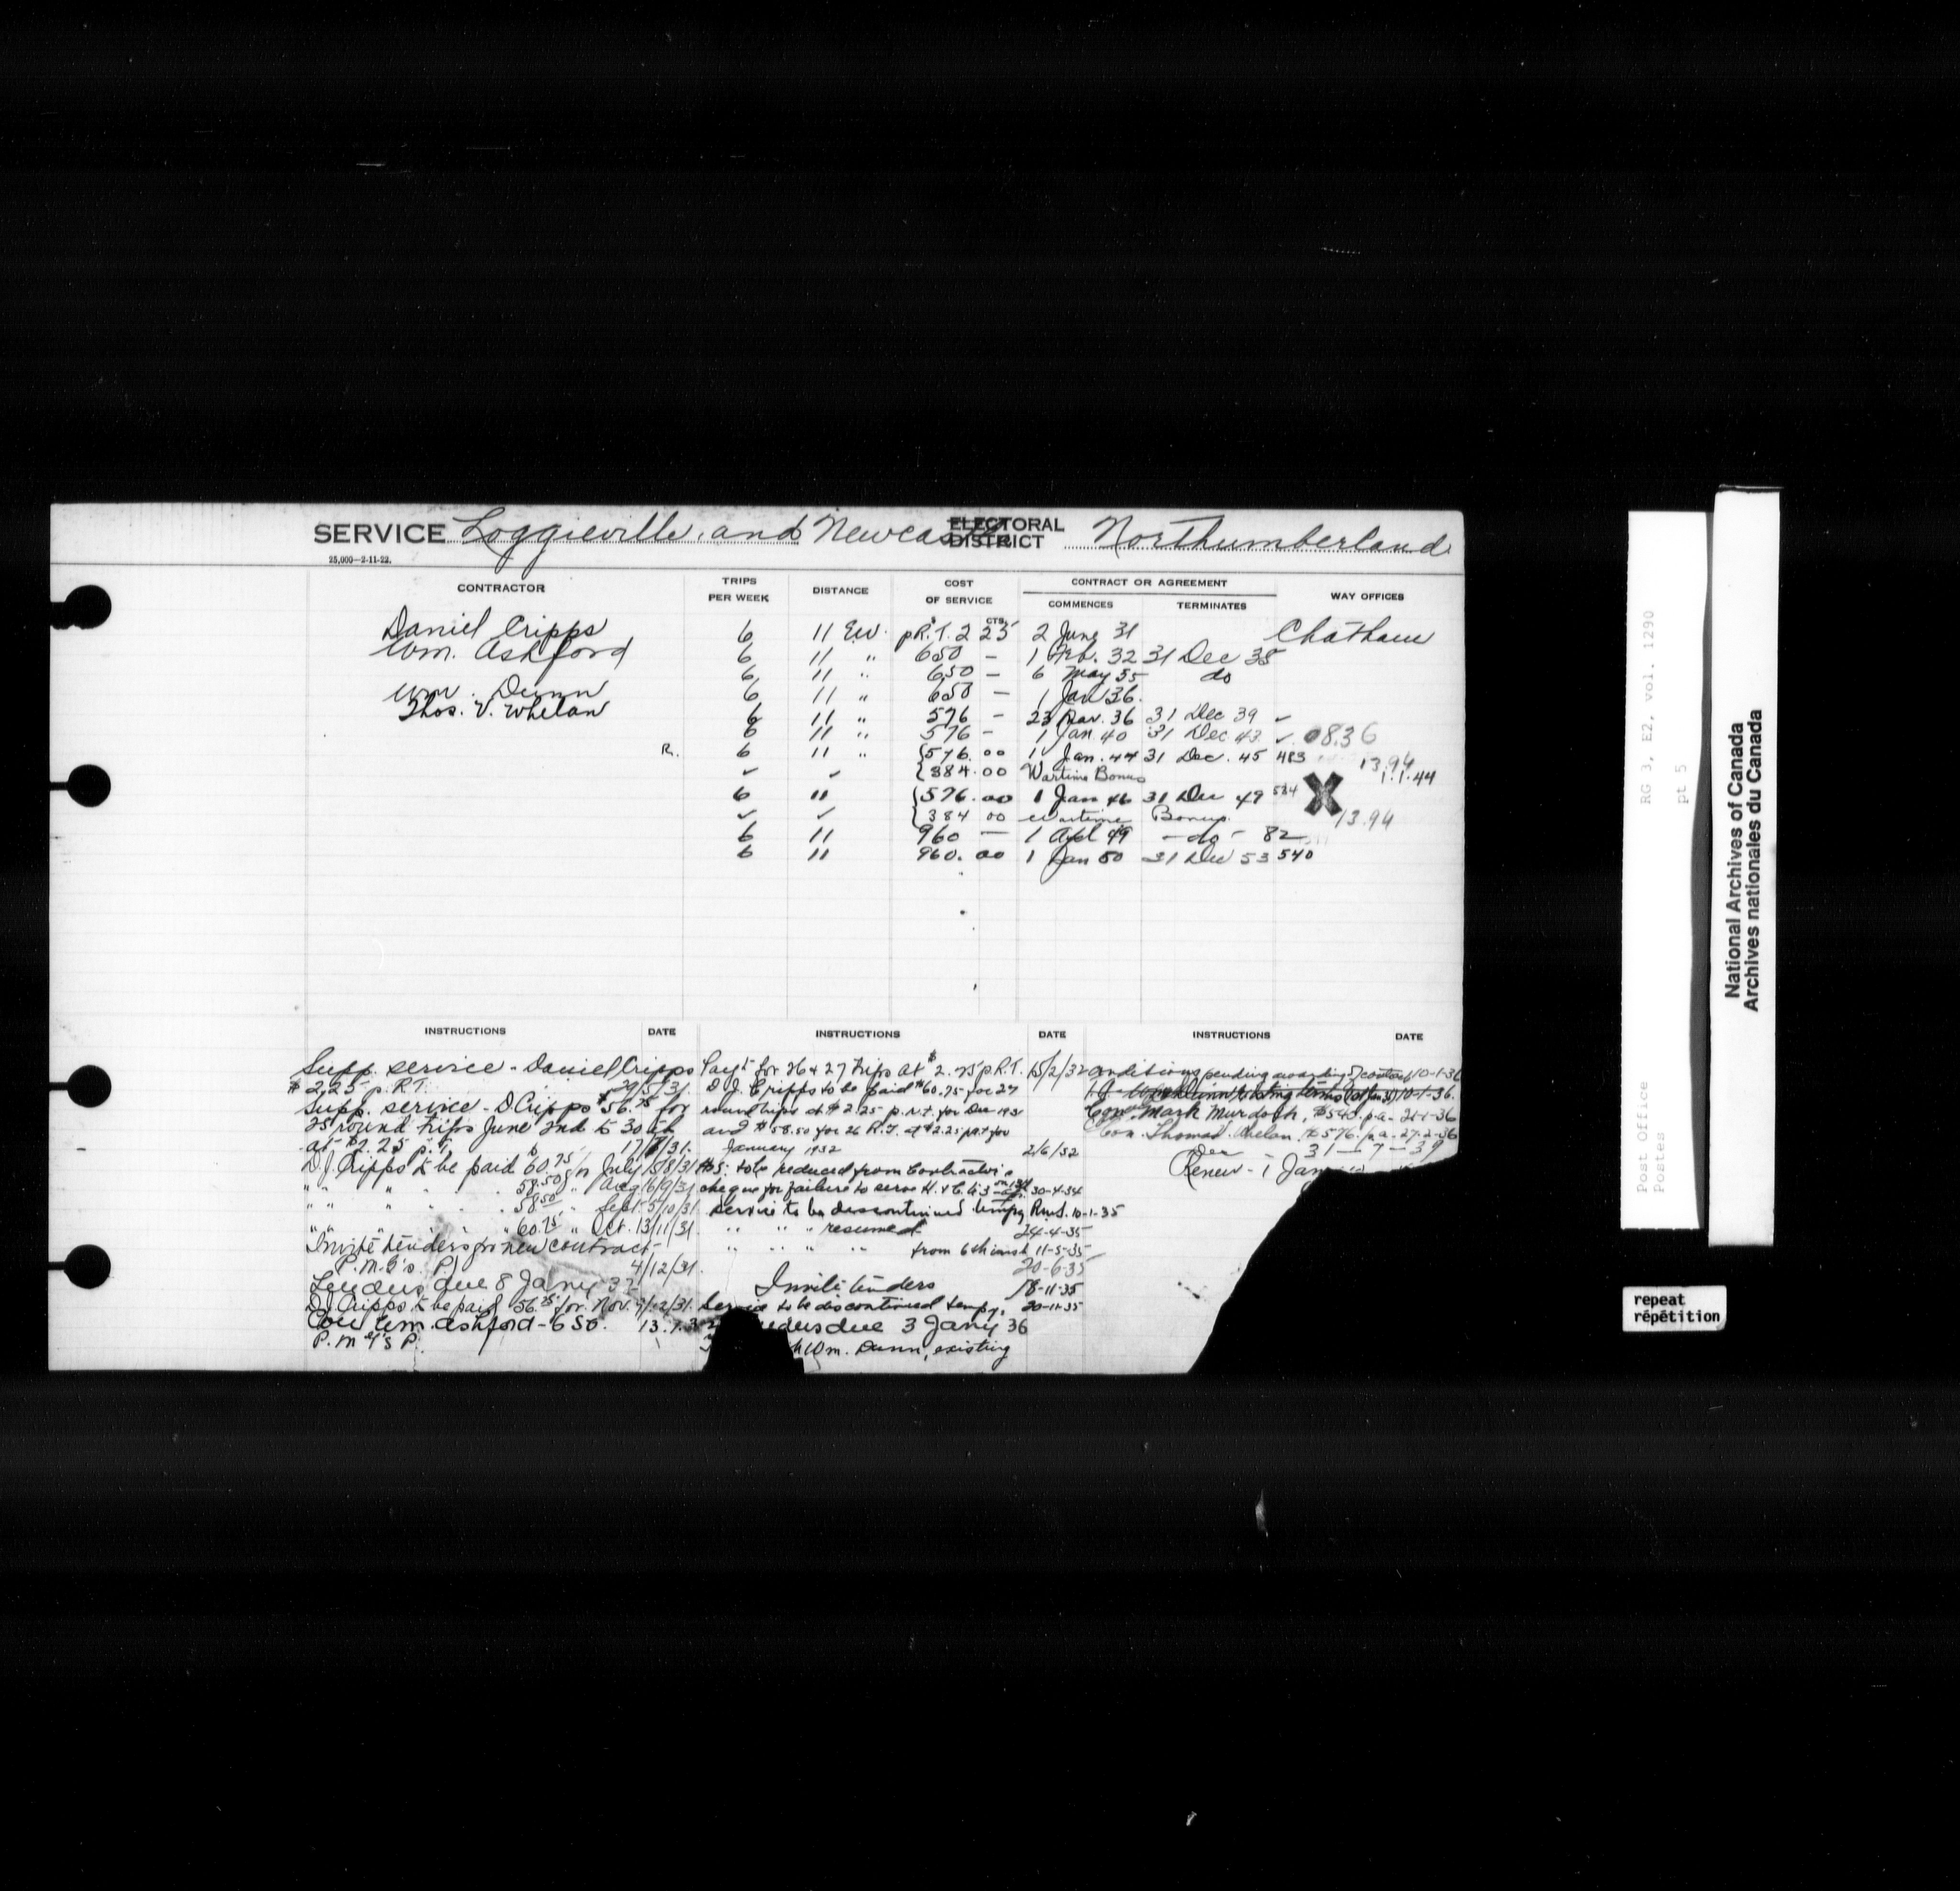 SERVICE Loggieville and Newcastle ELECTORAL DISTRICT Northumberland
25,000—2-11-22.
CONTRACTOR TRIPS PER WEEK DISTANCE COST OF SERVICE CONTRACT OR AGREEMENT COMMENCES TERMINATES WAY OFFICES
Daniel Cripps 6 11 p R.T. 2 25 CTS 2 June 31 Chatham
Wm. Ashford 6 11 " 650 — 1 Feb. 32 31 Dec 35
6 11 " 650 — 6 May 35 do
Wm. Dunn 6 11 " 650 — 1 Jan 36.
Thos. V. Whelan 6 11 " 576 - 23 Mar. 36 31 Dec 39 ✓
6 11 " 576 - 1 Jan 40 31 Dec 43 ✓ 0836
R. 6 11 " {576.00 1 Jan. 44 31 Dec. 45 483 13.94
✓ ✓ {384.00 Wartime Bonus 1.1.44
6 11 {576.00 1 Jan 46 31 Dec 49 534 X
✓ ✓ {384 00 Wartime Bonus. 13.94
6 11 960 — 1 Apl 49 - do - 82
6 11 960.00 1 Jan 50 31 Dec 53 540
INSTRUCTIONS DATE INSTRUCTIONS DATE INSTRUCTIONS DATE
Supp. service - Daniel Cripps
$2.25 p. R.T. 29/5/31.
Supp. service - D Cripps $56.25 for
25 round trips June 2nd to 30th
at $2.25 p. 17/7/31.
D.J. Cripps to be paid 60.75 for July 15/8/31
" " " 58.50 " Aug 16/9/31
" " " 58.50 " Sept. 5/10/31
" " " 60.75 " Oct. 13/11/31.
Invite tenders for new contract -
P.M.G's. P. 4/12/31.
Tenders due 8 Jany 32
D.J. Cripps to be paid 56.25 for Nov. 9/12/31.
Con Wm. Ashford - 650. 13.1.3
P.M.G's P.
Payt for 26 & 27 trips at $2.25 p R.T. 15/2/32
D.J. Cripps to be paid $60.75 for 27
round trips at $2.25 p.r.t. for Dec 1931
and $58.50 for 26 R.T. at $2.25 p.r.t for
January 1932 2/6/32
to be reduced from Contractor's
cheque for failure to serve 30-4-34
Service to be discontinued tempy 10-1-35
" " " resumed 24-4-35
" " " " from 6th inst 11-5-35
20-6-35
Invite tenders 18-11-35
Service to be discontinued tempy. 20-11-35
due 3 Jany 36
Wm. Dunn, existing
conditions pending awarding of contract 10-1-36
10-1-36.
Con Mark Murdoch, $545. p.a. 21-1-36
Con. Thomas Whelan $576. p.a. 27-2-36
Dec 31-7-39
Renew - 1 Jan
Post Office RG 3, E2, vol. 1290
Postes pt 5
National Archives of Canada
Archives nationales du Canada
repeat
répétition